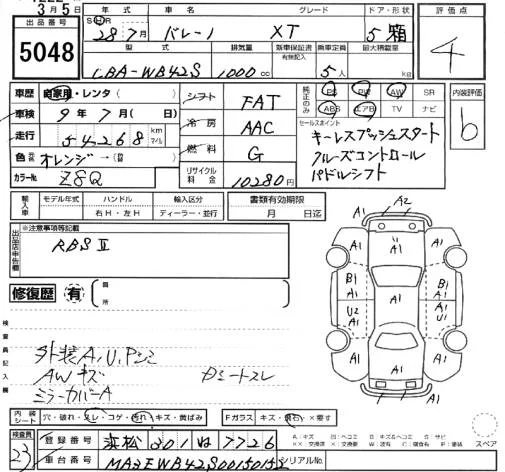 3月5日
出品番号
5048
年式
車名
グレード
ドア・形状
評価点
28 7月
バレーノ
XT
5 箱
4
型式
排気量
新車保証書
有無記入
乗車定員
最大積載量
CBA-WB42S
1000 cc
5人
kg
車歴
自家用・レンタ(
シフト
FAT
純正のみ
PS
PW
AW
SR
内装評価
車検
9年7月( 日)
ABS
エアB
TV
ナビ
b
走行
54268
km
マイル
冷房
AAC
セールスポイント
キーレスプッシュスタート
クルーズコントロール
パドルシフト
色
オレンジ→(
燃料
G
カラーNo.
Z8Q
リサイクル料金
10280円
輸入車
モデル年式
ハンドル
輸入区分
右H・左H
ディーラー・並行
書類有効期限
月 日迄
出品店申告欄
※注意事項等記載
RBSⅡ
修復歴
有
箇所
検査員記入欄
外装A,U,Pシミ
AWキズ
シートスレ
ミラーカバーA
A1
A2
A1
A1
A1
B1
A1
A1
B1
A1
A1
U2
A1
A1
U1
A1
A1
A1
A1
A1
内装
シート
穴・破れ・スレ・コゲ・汚れ・キズ・黄ばみ
Fガラス
キズ・飛石・×要す
スペア
検査員
23
登録番号
浜松 301 ぬ 7726
車台番号
MA3EWB42S00150152
シリアルNo.